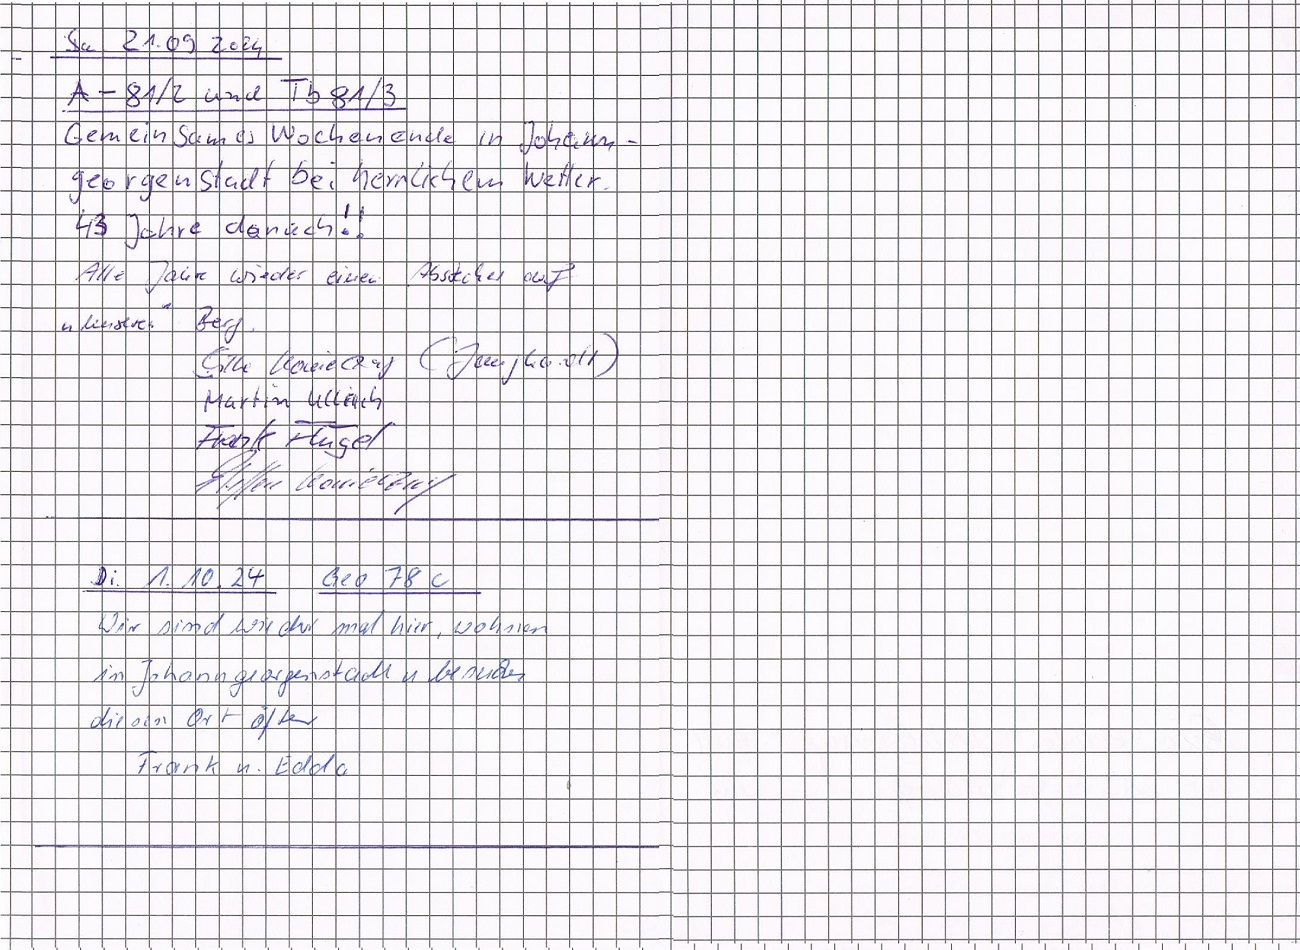 Sa 21.09 2024
A - 81/2 und Tb 81/3
Gemeinsames Wochenende in Johann-
georgenstadt bei herrlichem Wetter.
43 Jahre danach!!
Alle Jahre wieder einen Abstecher auf
"unseren" Berg.
Konieczny (Junghanß)
Martin Ullrich
Frank Flügel
Steffen Konieczny
Di. 1.10.24 Geo 78 c
Wir sind wieder mal hier, wohnen
in Johanngeorgenstadt u besuchen
diesen Ort öfter
Frank u. Edda